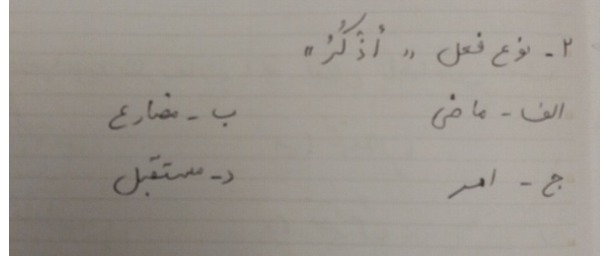 ٢- نوع فعل " أَذْكُرُ "
الف - ماضی ب - مضارع
ج - امر د - مستقبل